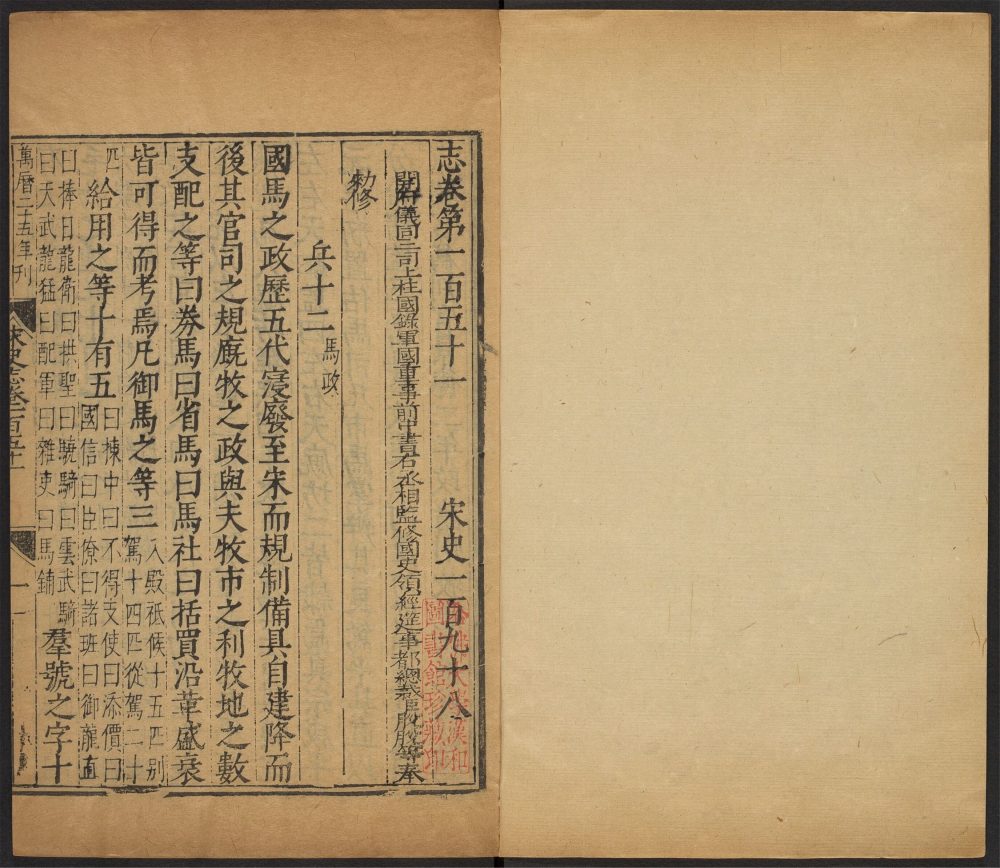 志卷第一百五十一 宋史一百九十八
開府儀同三司上柱國錄軍國重事前中書右丞相監修國史領經筵事都總裁臣脫脫等奉
勑修
兵十二 馬政
國馬之政歷五代寖廢至宋而規制備具自建降而
後其官司之規廐牧之政與夫牧市之利牧地之數
支配之等曰券馬曰省馬曰馬社曰括買沿革盛衰
皆可得而考焉凡御馬之等三 入殿祗候十五匹别
駕十四匹從駕二十
匹 給用之等十有五 曰揀中曰不得支使曰添價曰
國信曰臣僚曰諸班曰御龍直
曰捧日龍衛曰拱聖曰驍騎曰雲武騎
曰天武龍猛曰配軍曰雜吏曰馬鋪 羣號之字十
萬曆二十五年刊
宋史志卷一百五十一
一
哈佛大學漢和
圖書館珍藏印